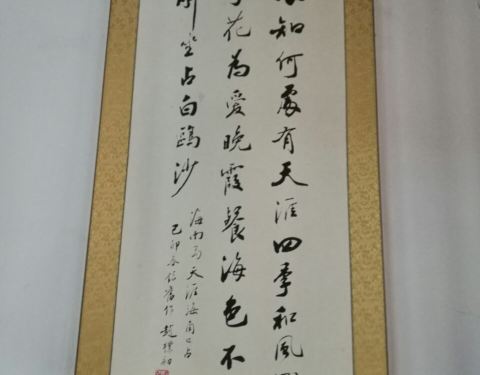 知何處有天涯四季和風
花為愛晚霞餐海色不
坐占白鷗沙
海南島天涯海角口占
己卯春錄舊作趙樸初